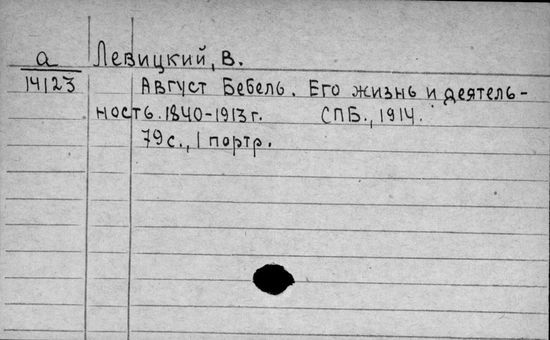 а Левицкий, В.
14123 Август Бебель. Его жизнь и деятель-
ность. 1840-1913 г. СПБ., 1914.
79 с., 1 портр.